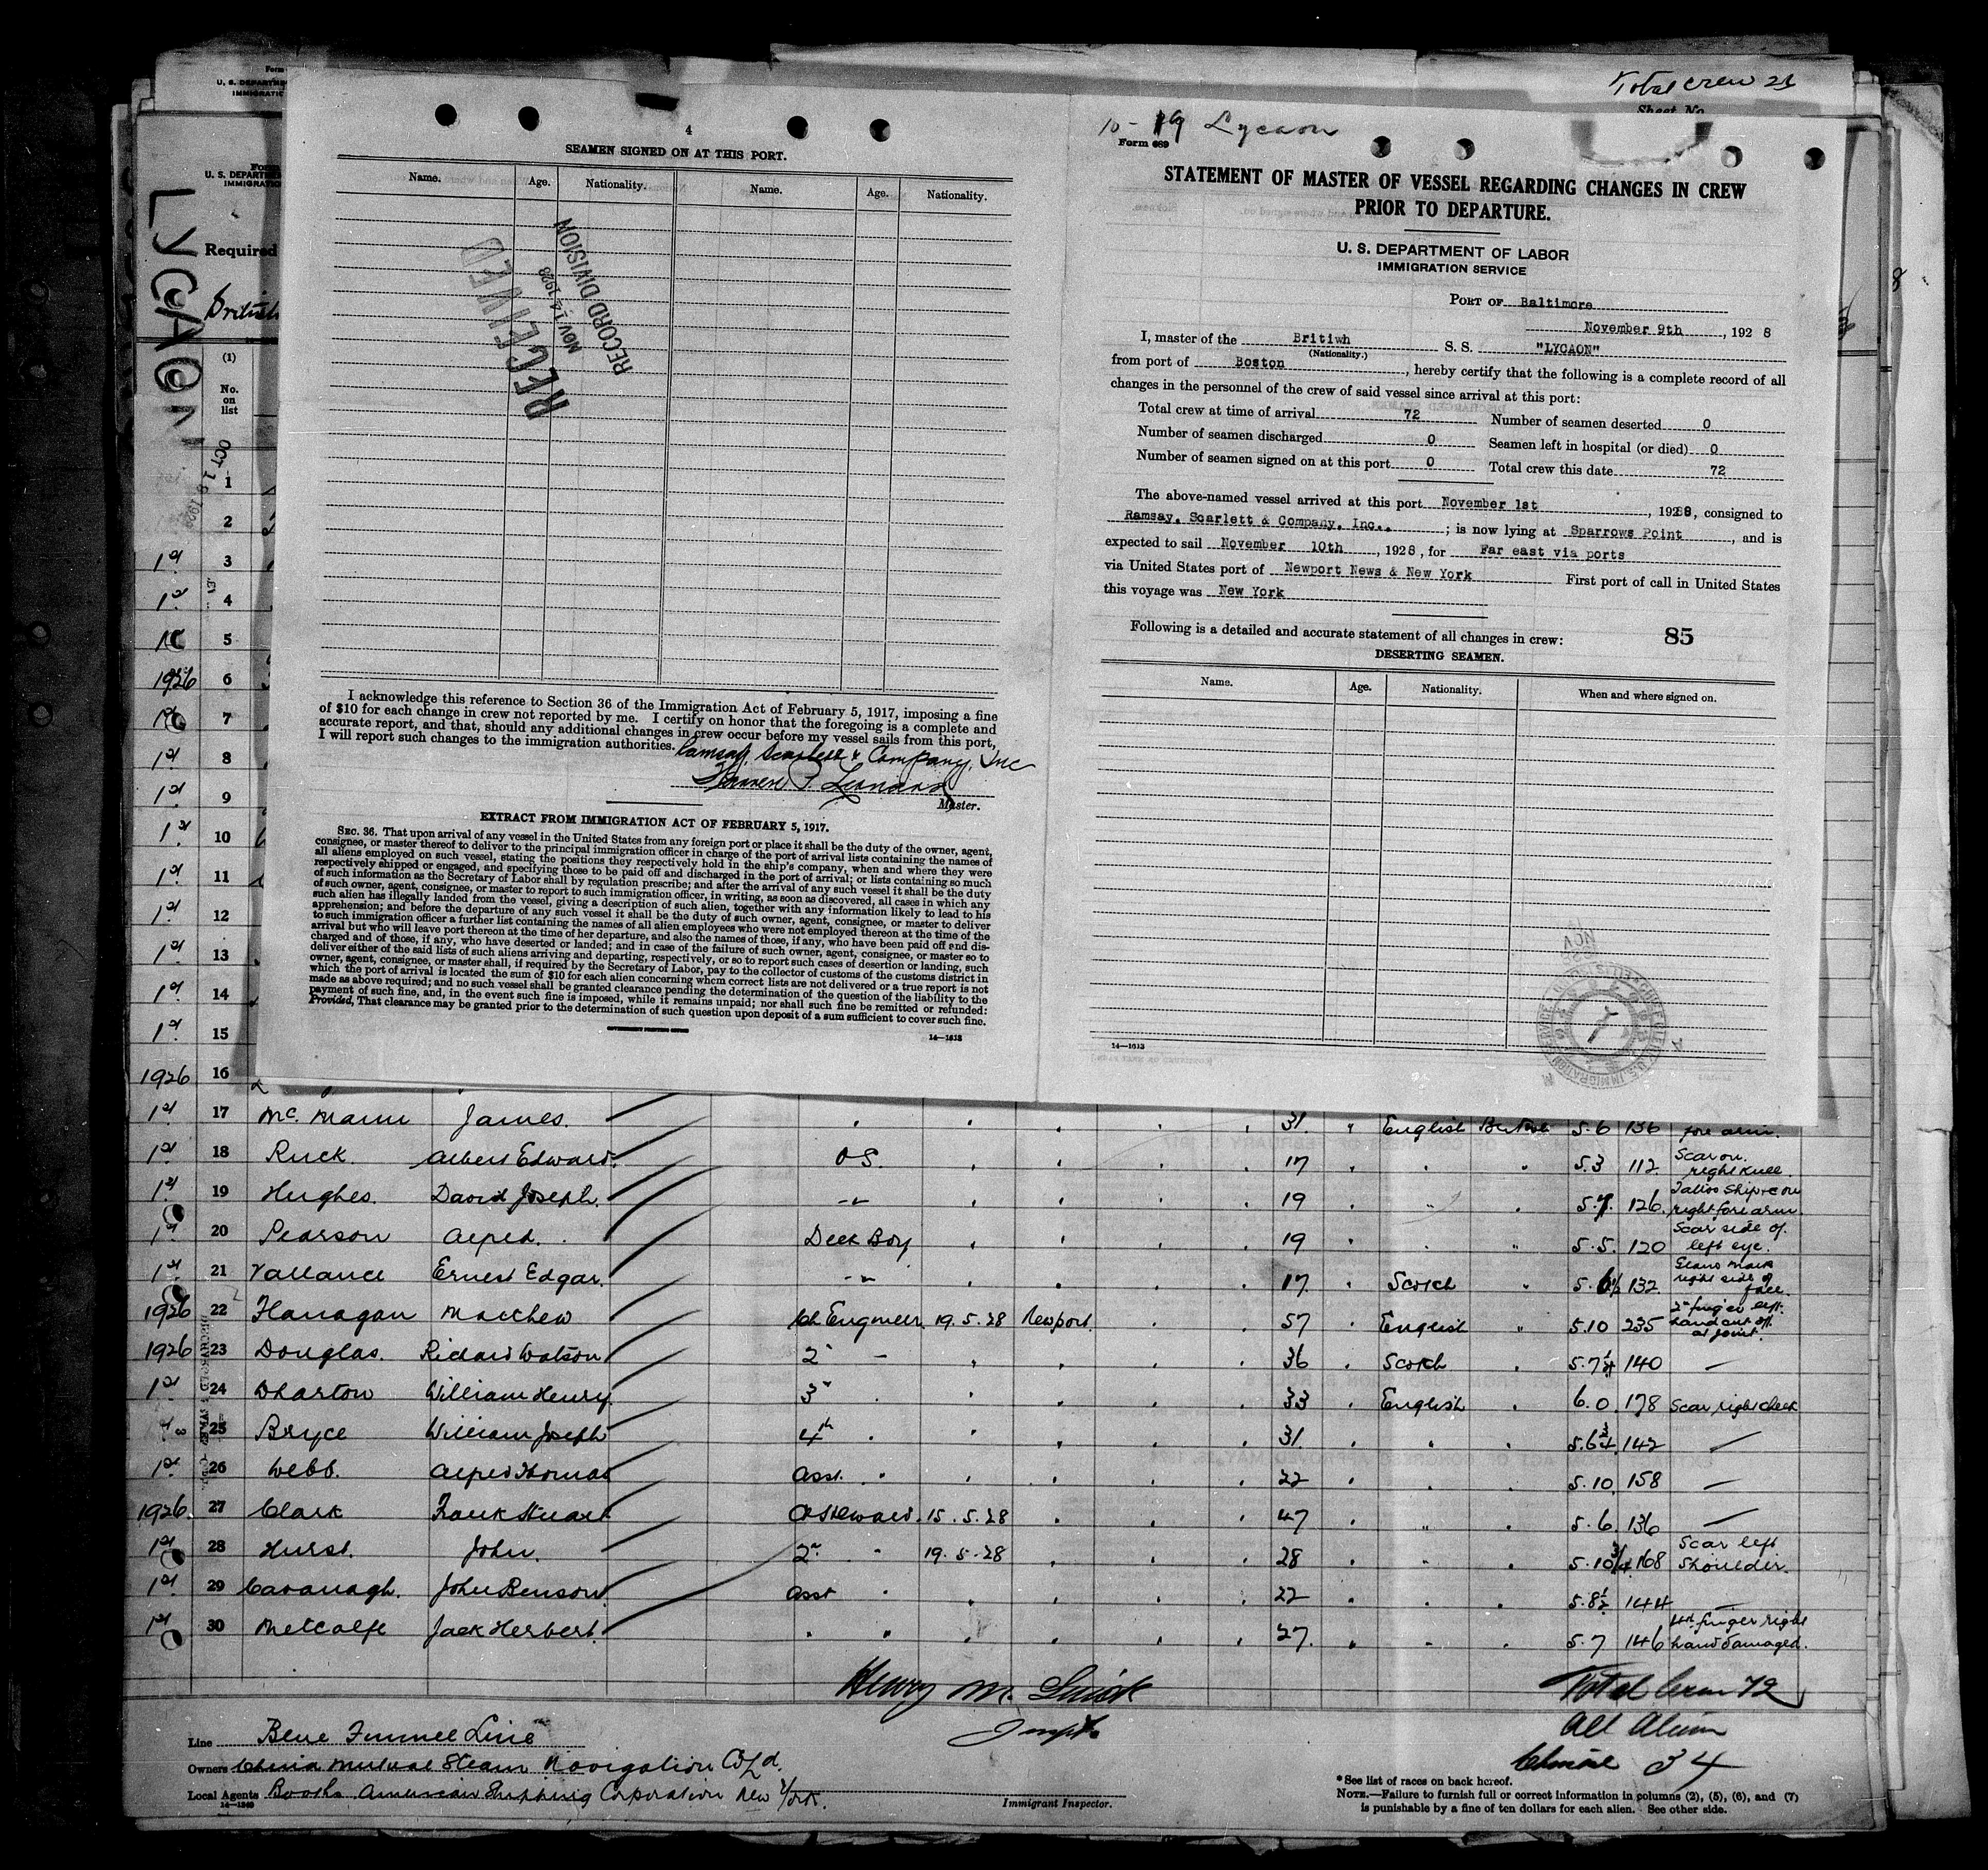 Total crew
Sheet No.
Form
U. S. DEPARTMENT
IMMIGRATION
Form
U. S. DEPARTM
IMMIGRATION
LYCAON
Required
British
(1)
No.
on
list
OCT 19 1928
4
SEAMEN SIGNED ON AT THIS PORT.
Name. Age. Nationality. Name. Age. Nationality.
RECEIVED
NOV 14 1928
RECORD DIVISION
I acknowledge this reference to Section 36 of the Immigration Act of February 5, 1917, imposing a fine
of $10 for each change in crew not reported by me. I certify on honor that the foregoing is a complete and
accurate report, and that, should any additional changes in crew occur before my vessel sails from this port,
I will report such changes to the immigration authorities. Ramsay, Scarlett & Company, Inc
Master.
EXTRACT FROM IMMIGRATION ACT OF FEBRUARY 5, 1917.
SEC. 36. That upon arrival of any vessel in the United States from any foreign port or place it shall be the duty of the owner, agent,
consignee, or master thereof to deliver to the principal immigration officer in charge of the port of arrival lists containing the names of
all aliens employed on such vessel, stating the positions they respectively hold in the ship's company, when and where they were
respectively shipped or engaged, and specifying those to be paid off and discharged in the port of arrival; or lists containing so much
of such information as the Secretary of Labor shall by regulation prescribe; and after the arrival of any such vessel it shall be the duty
of such owner, agent, consignee, or master to report to such immigration officer, in writing, as soon as discovered, all cases in which any
such alien has illegally landed from the vessel, giving a description of such alien, together with any information likely to lead to his
apprehension; and before the departure of any such vessel it shall be the duty of such owner, agent, consignee, or master to deliver
to such immigration officer a further list containing the names of all alien employees who were not employed thereon at the time of the
arrival but who will leave port thereon at the time of her departure, and also the names of those, if any, who have been paid off and dis-
charged and of those, if any, who have deserted or landed; and in case of the failure of such owner, agent, consignee, or master so to
deliver either of the said lists of such aliens arriving and departing, respectively, or so to report such cases of desertion or landing, such
owner, agent, consignee, or master shall, if required by the Secretary of Labor, pay to the collector of customs of the customs district in
which the port of arrival is located the sum of $10 for each alien concerning whom correct lists are not delivered or a true report is not
made as above required; and no such vessel shall be granted clearance pending the determination of the question of the liability to the
payment of such fine, and, in the event such fine is imposed, while it remains unpaid; nor shall such fine be remitted or refunded:
Provided, That clearance may be granted prior to the determination of such question upon deposit of a sum sufficient to cover such fine.
GOVERNMENT PRINTING OFFICE
14—1613
10-19 Lycaon
Form 689
STATEMENT OF MASTER OF VESSEL REGARDING CHANGES IN CREW
PRIOR TO DEPARTURE.
U. S. DEPARTMENT OF LABOR
IMMIGRATION SERVICE
PORT OF Baltimore
November 9th, 1928
I, master of the Britiwh S. S. "LYCAON"
(Nationality.)
from port of Boston, hereby certify that the following is a complete record of all
changes in the personnel of the crew of said vessel since arrival at this port:
Total crew at time of arrival 72 Number of seamen deserted 0
Number of seamen discharged 0 Seamen left in hospital (or died) 0
Number of seamen signed on at this port 0 Total crew this date 72
The above-named vessel arrived at this port November 1st, 1928, consigned to
Ramsay, Scarlett & Company, Inc.; is now lying at Sparrows Point, and is
expected to sail November 10th, 1928, for Far east via ports
via United States port of Newport News & New York First port of call in United States
this voyage was New York
Following is a detailed and accurate statement of all changes in crew: 85
DESERTING SEAMEN.
Name. Age. Nationality. When and where signed on.
14—1613
1
2
1st 3
1st 4
5
1926 6
7
1st 8
1st 9
1st 10
1st 11
1st 12
1st 13
1st 14
1st 15
1926 16
1st 17 Mc. Mann James. 31. " English British 5.6 136 fore arm.
1st 18 Ruck. Albert Edward. O S. 17 5.3 112. Scar on right knee.
1st 19 Hughes. David Joseph. 19 126. right fore arm
1st 20 Pearson Alfred. Deck Boy 19 5.5. 120 Scar side of left eye.
1st 21 Vallance Ernest Edgar. 17. Scotch 132. right side of face.
1926 22 Flanagan Matthew Ch Engineer 19.5.28 Newport. 57 English 5.10 235 2nd finger left hand cut off at joint.
1926 23 Douglas. Richard Watson 2nd 36 Scotch 5.7¼ 140 —
1st 24 Wharton William Henry. 3rd 33 English 6.0. 178 Scar right cheek
25 Bryce William Joseph 4th 31. 5.6¾ 142 —
1st 26 Webb. Alfred Thomas Asst. 22 5.10. 158 —
1926. 27 Clark Frank Stuart Ch Steward. 15.5.28 47 5.6. 136 —
1st 28 Hurst. John. 2nd 19.5.28 28 5.10¾ 168 Scar left Shoulder.
1st 29 Cavanagh. John Benson. Asst 22 5.8½ 144 —
1st 30 Metcalfe Jack Herbert. 27. 5.7 146 4th finger right hand damaged.
Total Crew 72
All Alien
Chinese 34
Line Blue Funnel Line
Owners China Mutual Steam Navigation Co Ld.
Local Agents Booths American Shipping Corporation New York.
14—1240
Immigrant Inspector.
* See list of races on back hereof.
NOTE.—Failure to furnish full or correct information in columns (2), (5), (6), and (7)
is punishable by a fine of ten dollars for each alien. See other side.